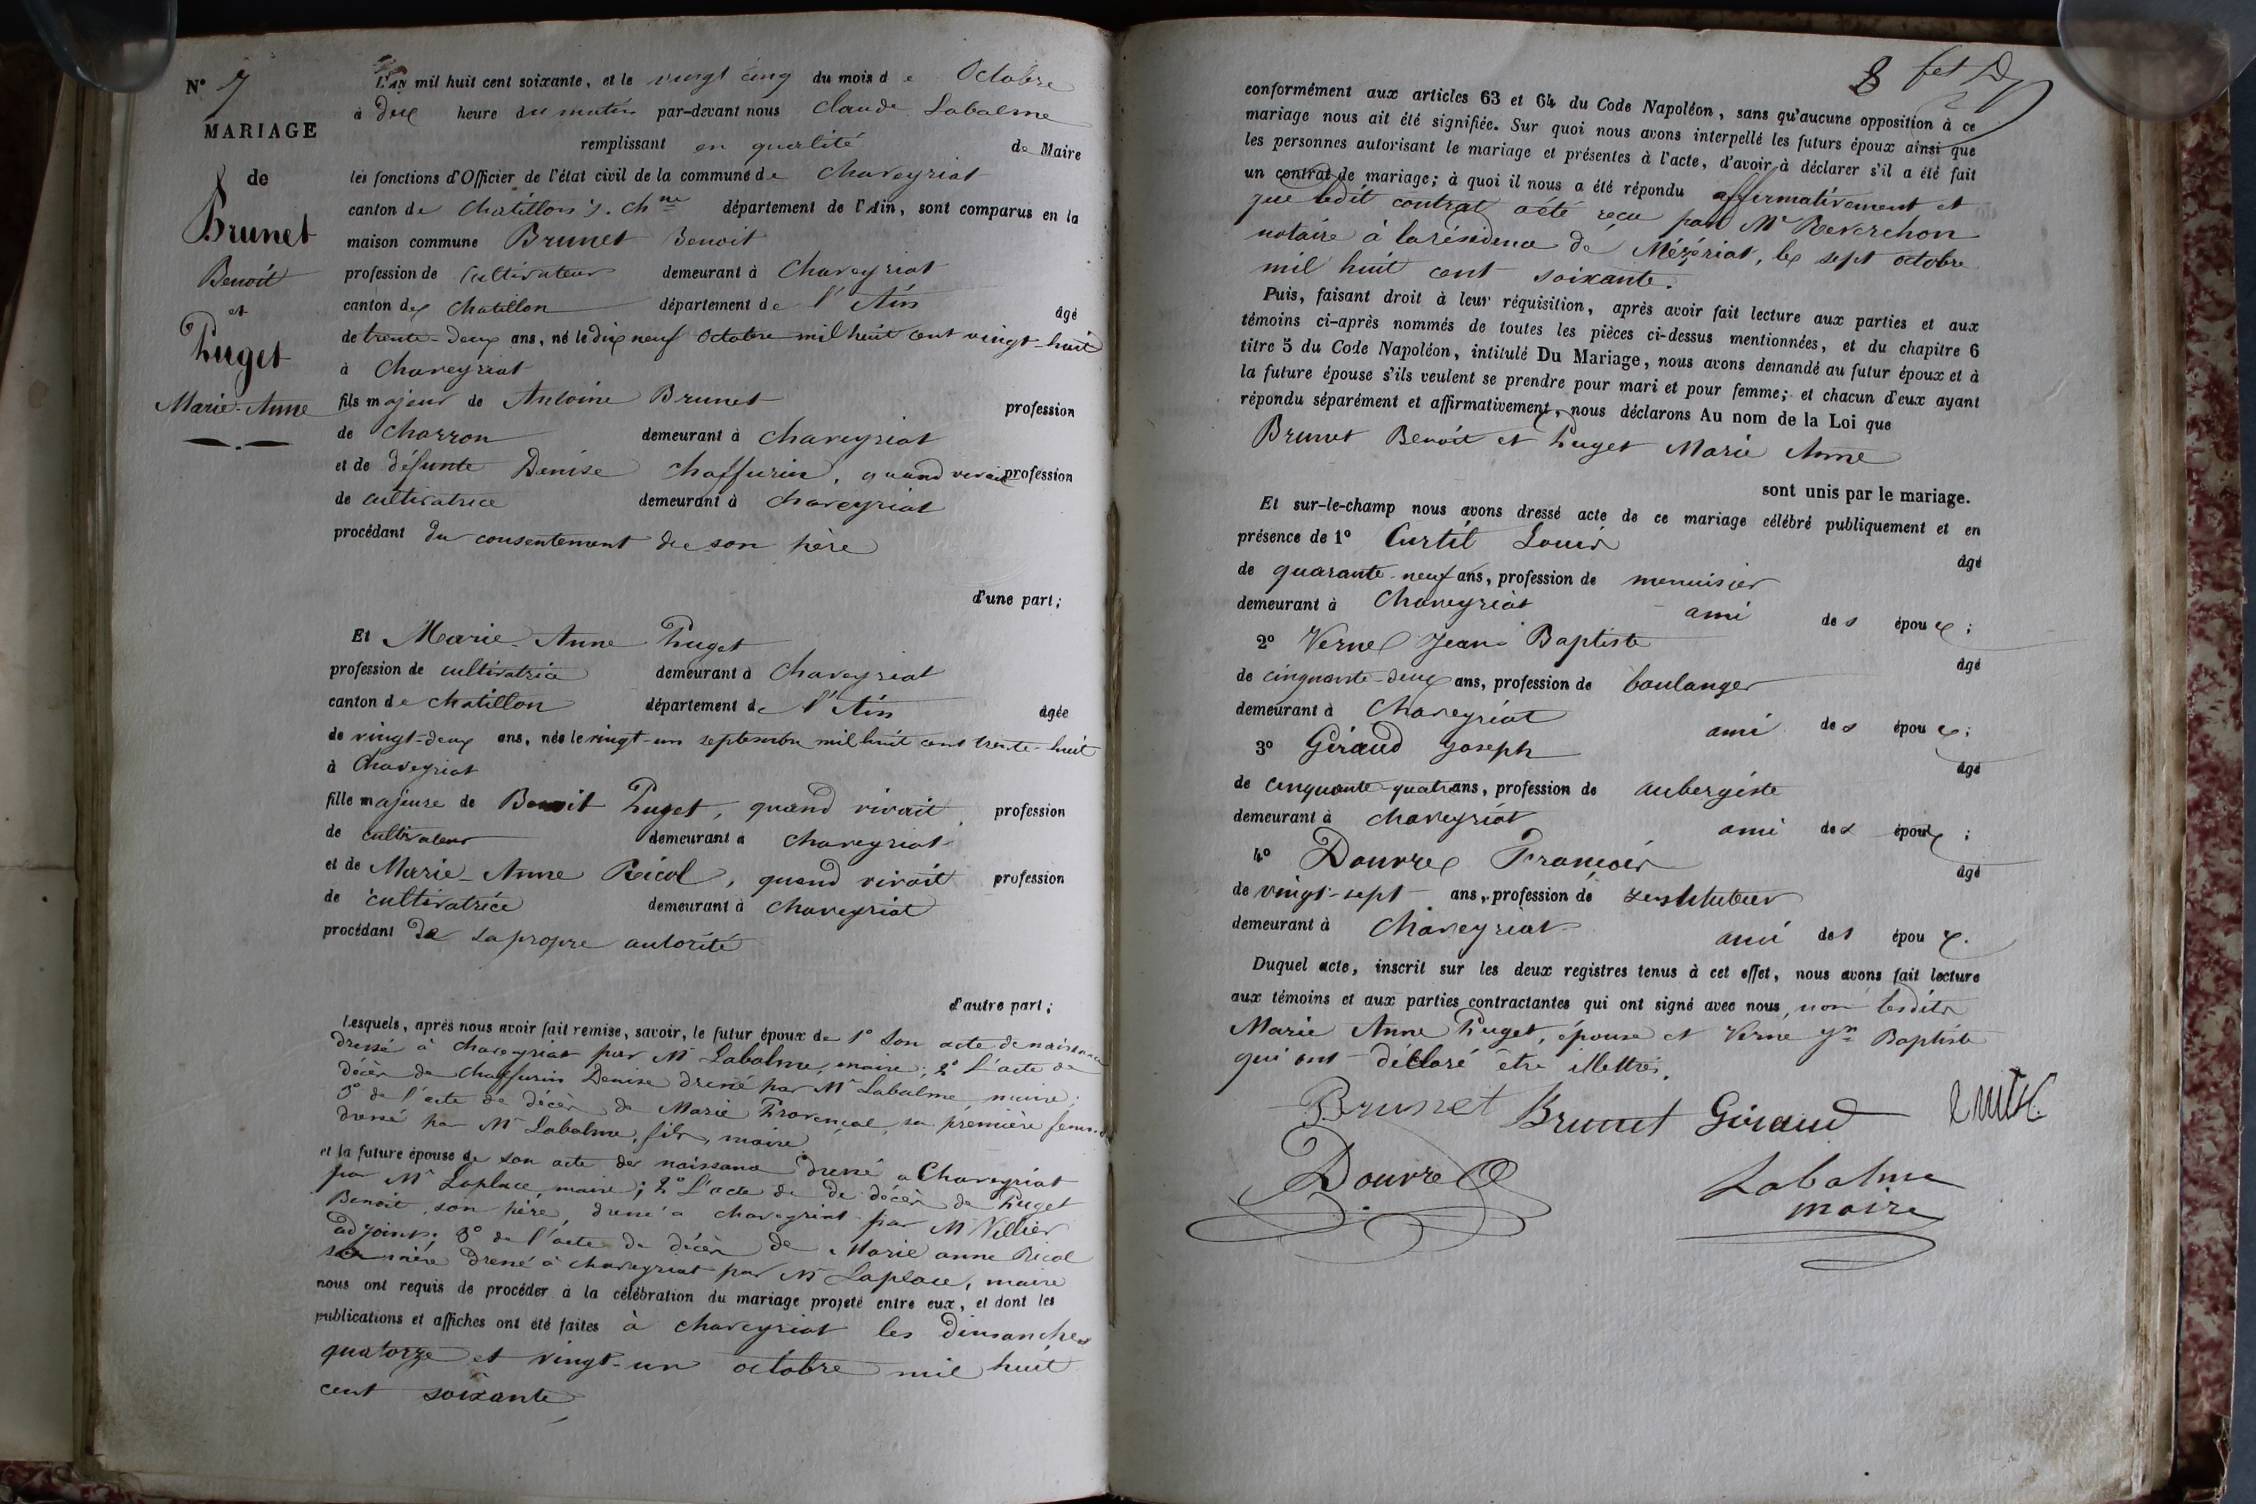 N° 7
MARIAGE
de
Brunet
Benoit
et
Puget
Marie-Anne
L'AN mil huit cent soixante, et le vingt cinq du mois de Octobre
à dix heure du matin par-devant nous Claude Labalme
remplissant en qualité de Maire
les fonctions d'Officier de l'état civil de la commune de Chaveyriat
canton de Chatillon s. Chne département de l'Ain, sont comparus en la
maison commune Brunet Benoit
profession de cultivateur demeurant à Chaveyriat
canton de Chatillon département de l'Ain âgé
de trente-deux ans, né le dix neuf octobre mil huit cent vingt-huit
à Chaveyriat
fils majeur de Antoine Brunet profession
de Charron demeurant à Chaveyriat
et de défunte Denise Chaffurin, quand vivait profession
de cultivatrice demeurant à Chaveyriat
procédant du consentement de son père
d'une part;
Et Marie-Anne Puget
profession de cultivatrice demeurant à Chaveyriat
canton de Chatillon département de l'Ain âgée
de vingt-deux ans, née le vingt-un septembre mil huit cent trente-huit
à Chaveyriat
fille majeure de Benoit Puget, quand vivait, profession
de cultivateur demeurant à Chaveyriat
et de Marie-Anne Ricol, quand vivait profession
de cultivatrice demeurant à Chaveyriat
procédant de sa propre autorité
d'autre part;
Lesquels, après nous avoir fait remise, savoir, le futur époux de 1° son acte de naissance
dressé à Chaveyriat par Mr Labalme, maire; 2° L'acte de
décès de Chaffurin Denise dressé par Mr Labalme maire;
3° de l'acte de décès de Marie Provençal, sa première femme
dressé par Mr Labalme, fils, maire
et la future épouse de son acte de naissance dressé a Chaveyriat
par Mr Laplace, maire; 2° L'acte de de décès de Puget
Benoit, son père, dressé a Chaveyriat par M Villier
adjoint; 3° de l'acte de décès de Marie anne Ricol
sa mère dressé à Chaveyriat par Mr Laplace, maire
nous ont requis de procéder à la célébration du mariage projeté entre eux, et dont les
publications et affiches ont été faites à Chaveyriat les dimanches
quatorze et vingt-un octobre mil huit
cent soixante
8
conformément aux articles 63 et 64 du Code Napoléon, sans qu'aucune opposition à ce
mariage nous ait été signifiée. Sur quoi nous avons interpellé les futurs époux ainsi que
les personnes autorisant le mariage et présentes à l'acte, d'avoir à déclarer s'il a été fait
un contrat de mariage; à quoi il nous a été répondu affirmativement et
que ledit contrat a été reçu par Mr Reverchon
notaire à la résidence de Mézériat, le sept octobre
mil huit cent soixante.
Puis, faisant droit à leur réquisition, après avoir fait lecture aux parties et aux
témoins ci-après nommés de toutes les pièces ci-dessus mentionnées, et du chapitre 6
titre 5 du Code Napoléon, intitulé Du Mariage, nous avons demandé au futur époux et à
la future épouse s'ils veulent se prendre pour mari et pour femme; et chacun d'eux ayant
répondu séparément et affirmativement, nous déclarons Au nom de la Loi que
Brunet Benoit et Puget Marie Anne
sont unis par le mariage.
Et sur-le-champ nous avons dressé acte de ce mariage célébré publiquement et en
présence de 1° Curtil Louis âgé
de quarante-neuf ans, profession de menuisier
demeurant à Chaveyriat ami des époux;
2° Verne Jean Baptiste âgé
de cinquante-deux ans, profession de boulanger
demeurant à Chaveyriat ami des époux;
3° Giraud Joseph âgé
de cinquante-quatre ans, profession de aubergiste
demeurant à Chaveyriat ami des époux;
4° Douvre François âgé
de vingt-sept ans, profession de instituteur
demeurant à Chaveyriat ami des époux.
Duquel acte, inscrit sur les deux registres tenus à cet effet, nous avons fait lecture
aux témoins et aux parties contractantes qui ont signé avec nous, non lesdits
Marie Anne Puget, épouse et Verne Jn Baptiste
qui ont déclaré être illettrés.
Brunet Brunet Giraud
Douvre Labalme
maire